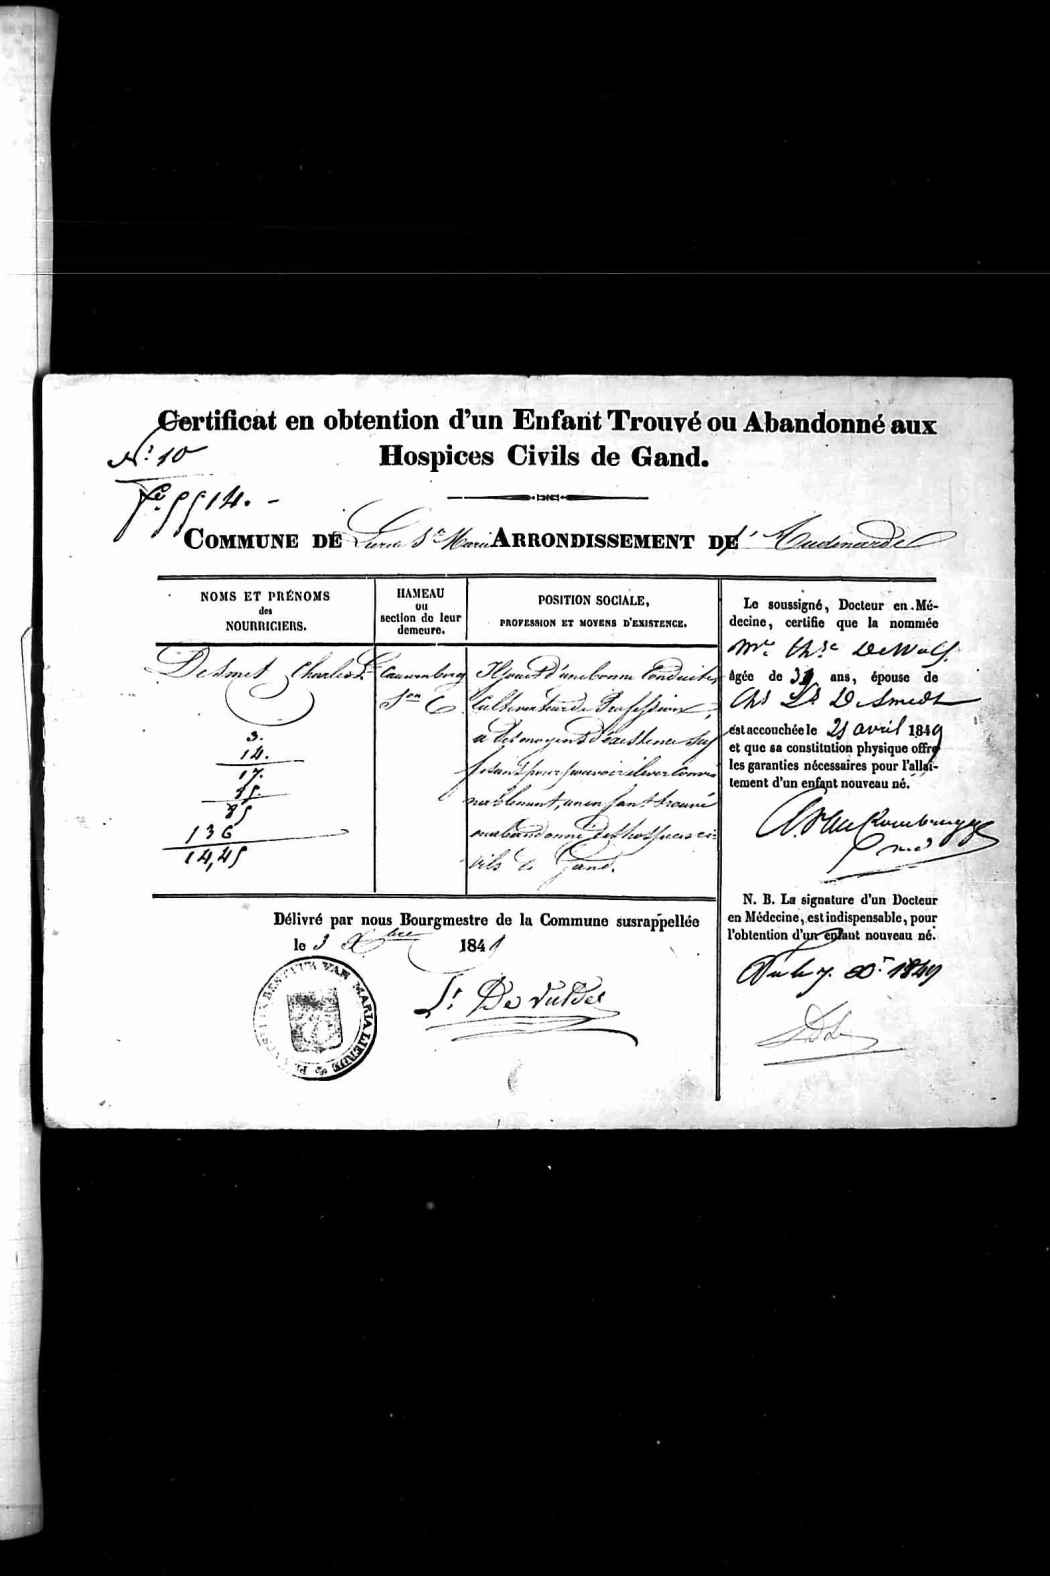 Certificat en obtention d'un Enfant Trouvé ou Abandonné aux
Hospices Civils de Gand.
N.º 10
5514. -
COMMUNE DE Lierde Ste Marie ARRONDISSEMENT DE d'Audenarde
NOMS ET PRÉNOMS
des
NOURRICIERS.
HAMEAU
ou
section de leur
demeure.
POSITION SOCIALE,
PROFESSION ET MOYENS D'EXISTENCE.
Desmet Charles Ls
3.
14.
17.
136
14,45
Cauwenberg
Son C
Il jouit d'une bonne Conduite,
Cultivateur de Profession,
a des moyens d'existence suf
fisants pour pouvoir élever Conve
nablement, un enfant trouvé
ou abandonné des hospices ci-
vils de Gand.
Le soussigné, Docteur en Mé-
decine, certifie que la nommée
Mie Thse De Wolf.
âgée de ans, épouse de
Chs Ls De Smedt
est accouchée le 25 avril 1849
et que sa constitution physique offre
les garanties nécessaires pour l'allai-
tement d'un enfant nouveau né.
N. B. La signature d'un Docteur
en Médecine, est indispensable, pour
l'obtention d'un enfant nouveau né.
Vu le 7. 1849
Délivré par nous Bourgmestre de la Commune susrappellée
le 3 Xbre 184
BESTUUR VAN MARIA LIERDE